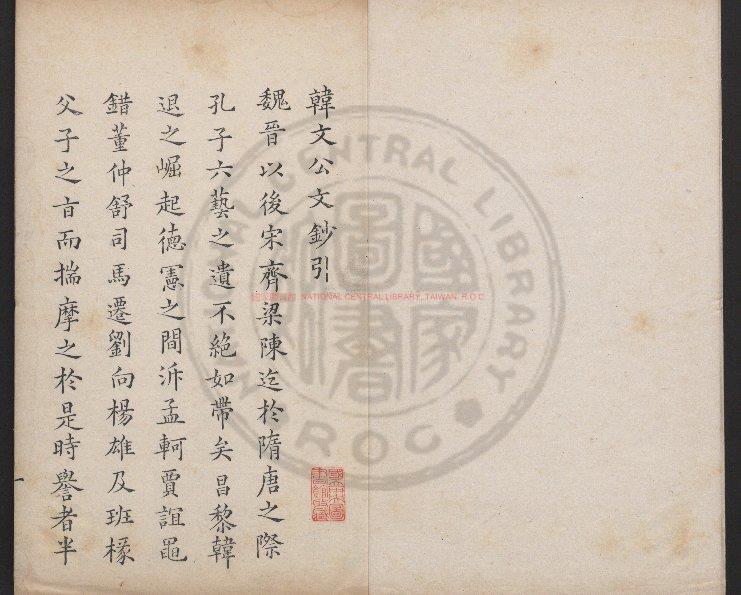 韓文公文鈔引
魏晉以後宋齊梁陳迄於隋唐之際
孔子六藝之遺不絕如帶矣昌黎韓
退之崛起德憲之間泝孟軻賈誼鼂
錯董仲舒司馬遷劉向楊雄及班椽
父子之旨而揣摩之於是時譽者半
國立中央圖書館收藏
國家圖書館 NATIONAL CENTRAL LIBRARY, TAIWAN R.O.C
NATIONAL CENTRAL LIBRARY
R.O.C
國家圖書